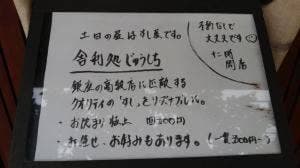 土日の昼はすし屋です。
舎利処じゅうしち
銀座の高級店に匹敵する
クオリティの「すし」をリーズナブルに。
・お決まり 極上 四三〇〇円
・お任せ・お好みもあります。(一貫三〇〇円〜)
予約なしで
大丈夫です
十二時
開店